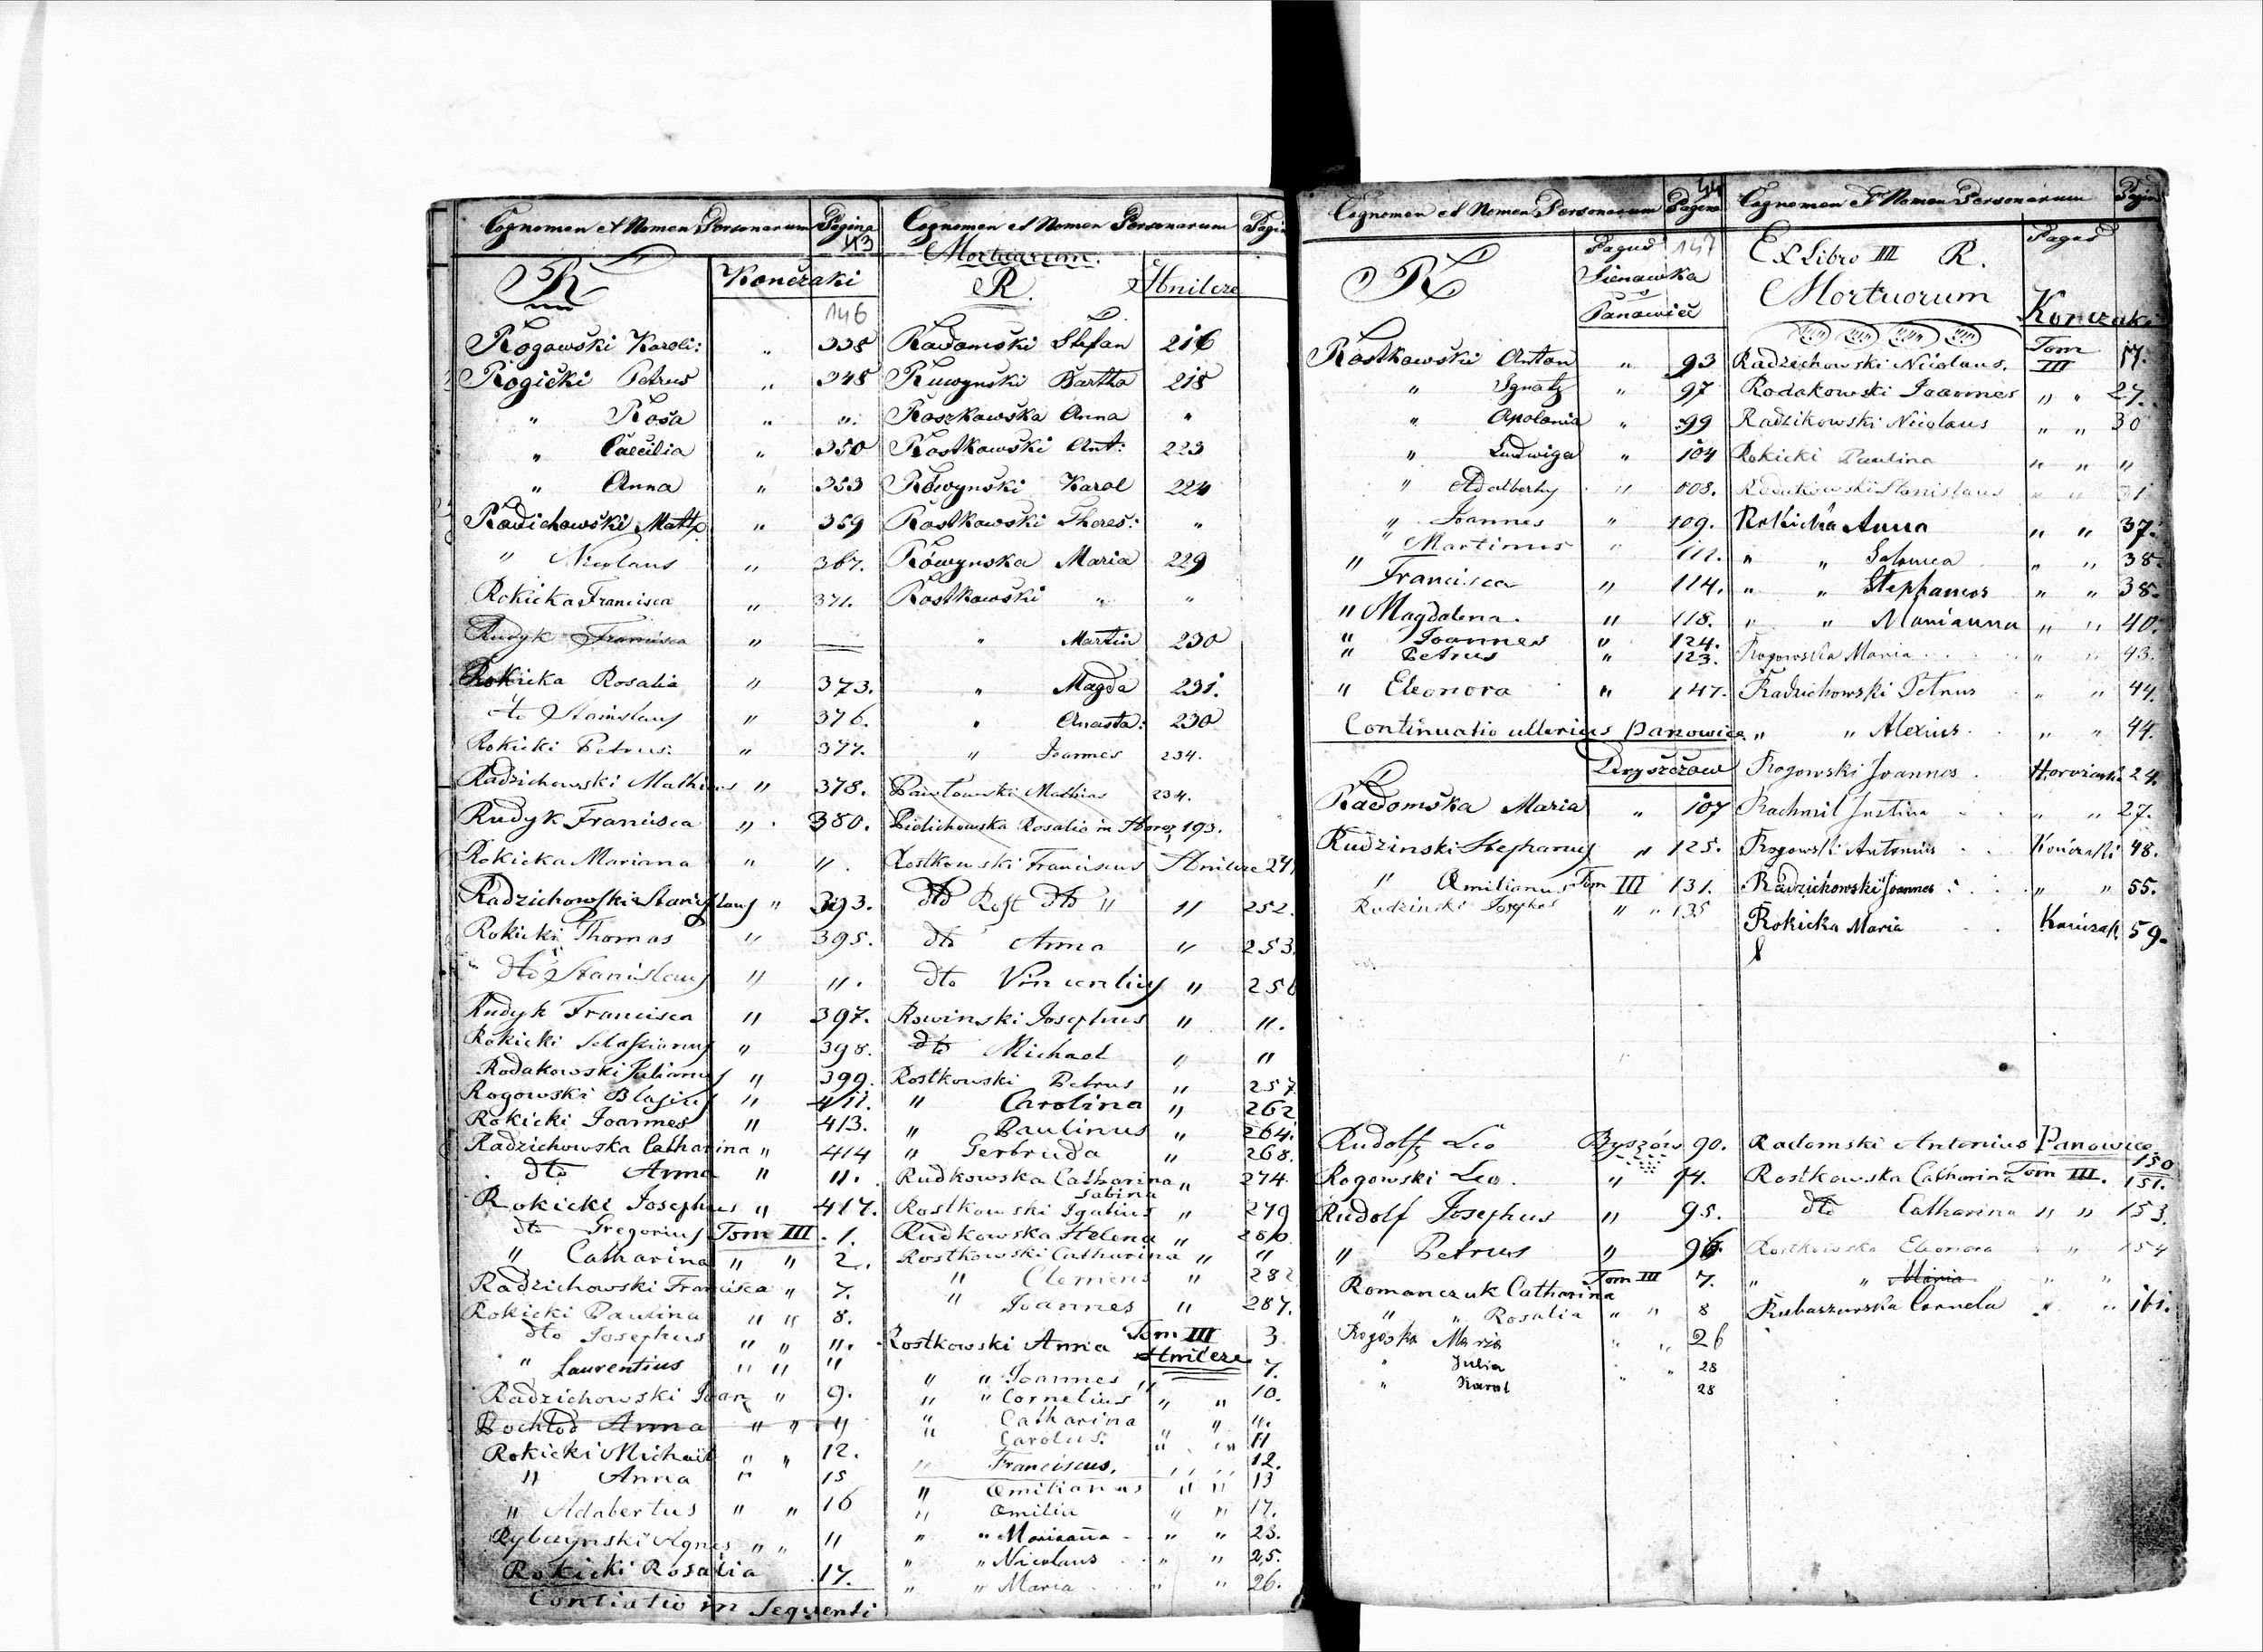 Cognomen et Nomen Personarum Pagina
43
R Kończaki
146
Rogowski Karoli: " 338
Rogicki Petrus " 348
" Rosa " "
" Caecilia " 350
" Anna " 353
Radichowski Math. " 359
" Nicolaus " 367.
Rokicka Francisca " 371.
Rudyk Francisca "
Rokicka Rosalia " 373.
dto Stanislaus " 376.
Rokicki Petrus: " 377.
Radzichowski Mathias " 378.
Rudyk Francisca " 380.
Rokicka Mariana " ".
Radzichowski Stanislaus " 393.
Rokicki Thomas " 395.
dto Stanislaus " ".
Rudyk Francisca " 397.
Rokicki " 398.
Rodakowski Julianus " 399.
Rogowski Blasius " 411.
Rokicki Joannes " 413.
Radzichowska Catharina " 414
dto Anna " ".
Rokicki Josephus " 417.
dto Gregorius Tom III . 1.
" Catharina " " 2.
Radzichowski Francisca " 7.
Rokicki Paulina " " 8.
dto Josephus " " ".
" Laurentius " " "
Radzichowski Joan " 9.
Anna " " "
Rokicki Michael " " 12.
" Anna " 15
" Adabertus " " 16
Rybczynski Agnes " " "
Rokicki Rosalia 17.
Contiatio in Sequenti
Cognomen et Nomen Personarum Pagin
Mortuorum.
R. Hnilcze
Radomski Stefan 216
Ruwynski Bartho 218
Roszkowska Anna "
Rostkowski Ant: 223
Rowynski Karol 224
Rostkowski Theres: "
Rówynska Maria 229
Rostkowski " "
" Martin 230
" Magda 231.
" Anasta: 230
" Joannes 234.
Pawłowski Mathias 234.
Rosalia in Horoz 193.
Rostkowski Franciscus Hnilcze 24
dto Rost dto " " 252.
dto Anna " 253.
dto Vincentius " 256
Rowinski Josephus " ".
dto Michael " "
Rostkowski Petrus " 257
" Carolina " 262
" Paulinus " 264.
" Gertruda " 268.
Rudkowska Catharina " 274
Sabina
Rostkowski Igatius " 279
Rudkowska Helena " 280.
Rostkowski Catharina " "
" Clemens " 282
" Joannes " 287.
Rostkowski Anna Tom III 3.
Hnilcze
" " Joannes " 7.
" " Cornelius " " 10.
" Catharina " " ".
" Carolus. " " 11
" Franciscus, " " 12.
" Emilianus " " 13
" Emilia " " 17.
" " Marianna " " 23.
" " Nicolaus " " 25.
" " Maria " " 26.
Cognomen et Nomen Personarum Pagina
R Pagus 147
Sienawka
Panowice
Rostkowski Anton " 93
" Ignatz " 97
" Apolonia " 99
" Ludwiga " 104
" Adalberty " 108.
" Joannes " 109.
" Martinus " 111.
" Francisca " 114.
" Magdalena. " 118.
" Joannes " 124.
" Petrus " 123.
" Eleonora " 147.
Continuatio ulterius Panowice
Dryszczow
Radomska Maria " 107
Rudzinski Stephanus " 125.
" Emilianus Tom III 131.
Rudzinski Josephus " " 135
Rudolf Leo Byszów 90.
Rogowski Leo. " 94.
Rudolf Josephus " 95.
" Petrus " 96.
Romanczuk Catharina Tom III 7.
" " Rosalia " " 8
Rogoska Maria " " 26
" Julia " " 28
" Karol 28
Cognomen et Nomen Personarum Pagin
Ex Libro III R. Pagus
Mortuorum Konczaki
Radzichowski Nicolaus. Tom III 17.
Rodakowski Joannes " " 27.
Radzikowski Nicolaus " " 30
Rokicki Paulina " " "
Rodakowski Stanislaus " " 31
Rokicka Anna " " 37.
" " Salomea " " 38.
" " Stephanus " " 38.
" " Marianna " " 40.
Rogowska Maria " " 43.
Radzichowski Petrus " " 44.
" " Alexius " " 44.
Rogowski Joannes 24.
Rachmil Justina " " 27.
Rogowski Antonius Kończaki 48.
Radzichowski Joannes " " 55.
Rokicka Maria 59.
Radomski Antonius Panowice 150
Rostkowska Catharina Tom III. 151.
dto Catharina " " 153.
Rostkowska Eleonora " 154
" " Maria " "
Cornela " " 161.